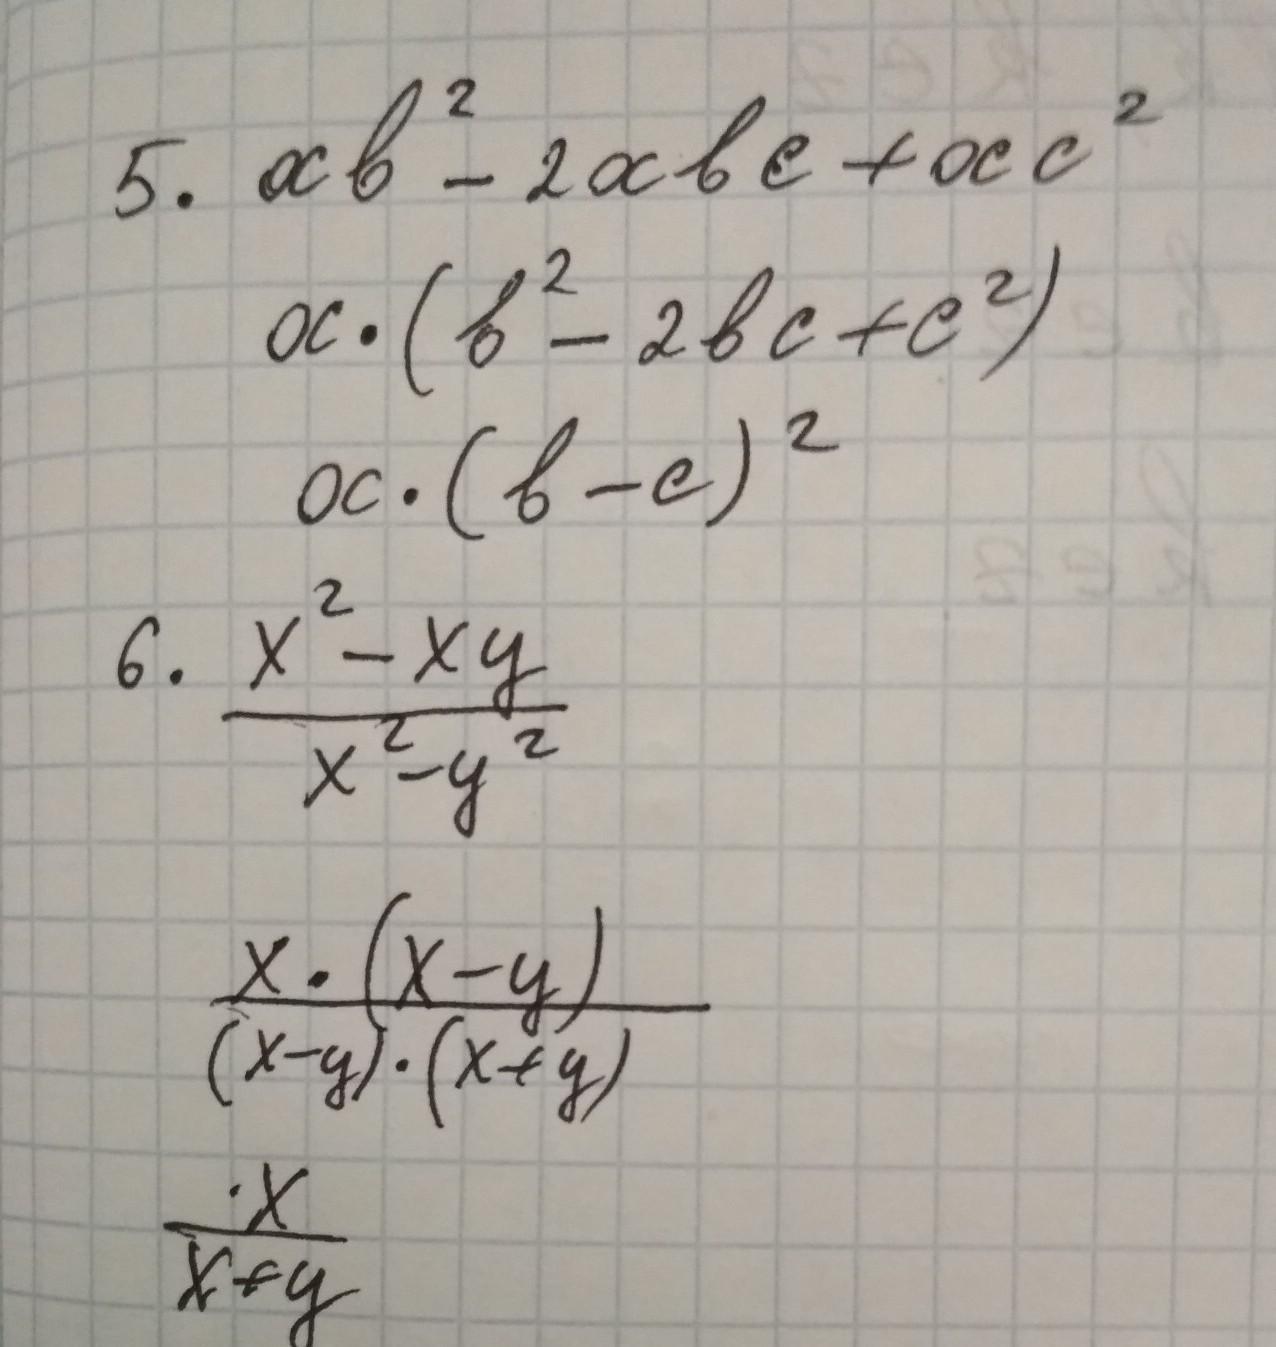 5. ab² - 2abc + ac²
a·(b² - 2bc + c²)
a·(b - c)²
6. x² - xy
x² - y²
x·(x - y)
(x - y)·(x + y)
x
x + y